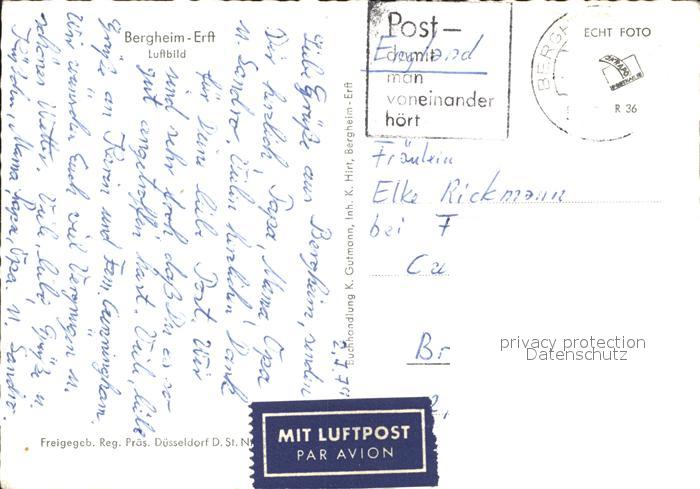 Bergheim-Erft
Luftbild
2.7.74
Liebe Grüße aus Bergheim, senden
Dir herzlich Papa, Mama, Opa
u. Sandro. Vielen herzlichen Dank
für Deine liebe Post. Wir
sind sehr froh daß Du es so
gut angetroffen hast. Viele liebe
Grüße an Karen und Fam. Cunningham.
Wir wünschen Euch viel Vergnügen u.
schönes Wetter. Viele, liebe Grüße u.
Küßchen, Mama, Papa Opa u. Sandro.
Buchhandlung K. Gutmann, Inh. K. Hirt, Bergheim-Erft
Freigegeb. Reg. Präs. Düsseldorf D. St. N
Post–
damit
man
voneinander
hört
England
BERG
ECHT FOTO
R 36
Fräulein
Elke Rickmann
bei F
Cu
Br
privacy protection
Datenschutz
MIT LUFTPOST
PAR AVION